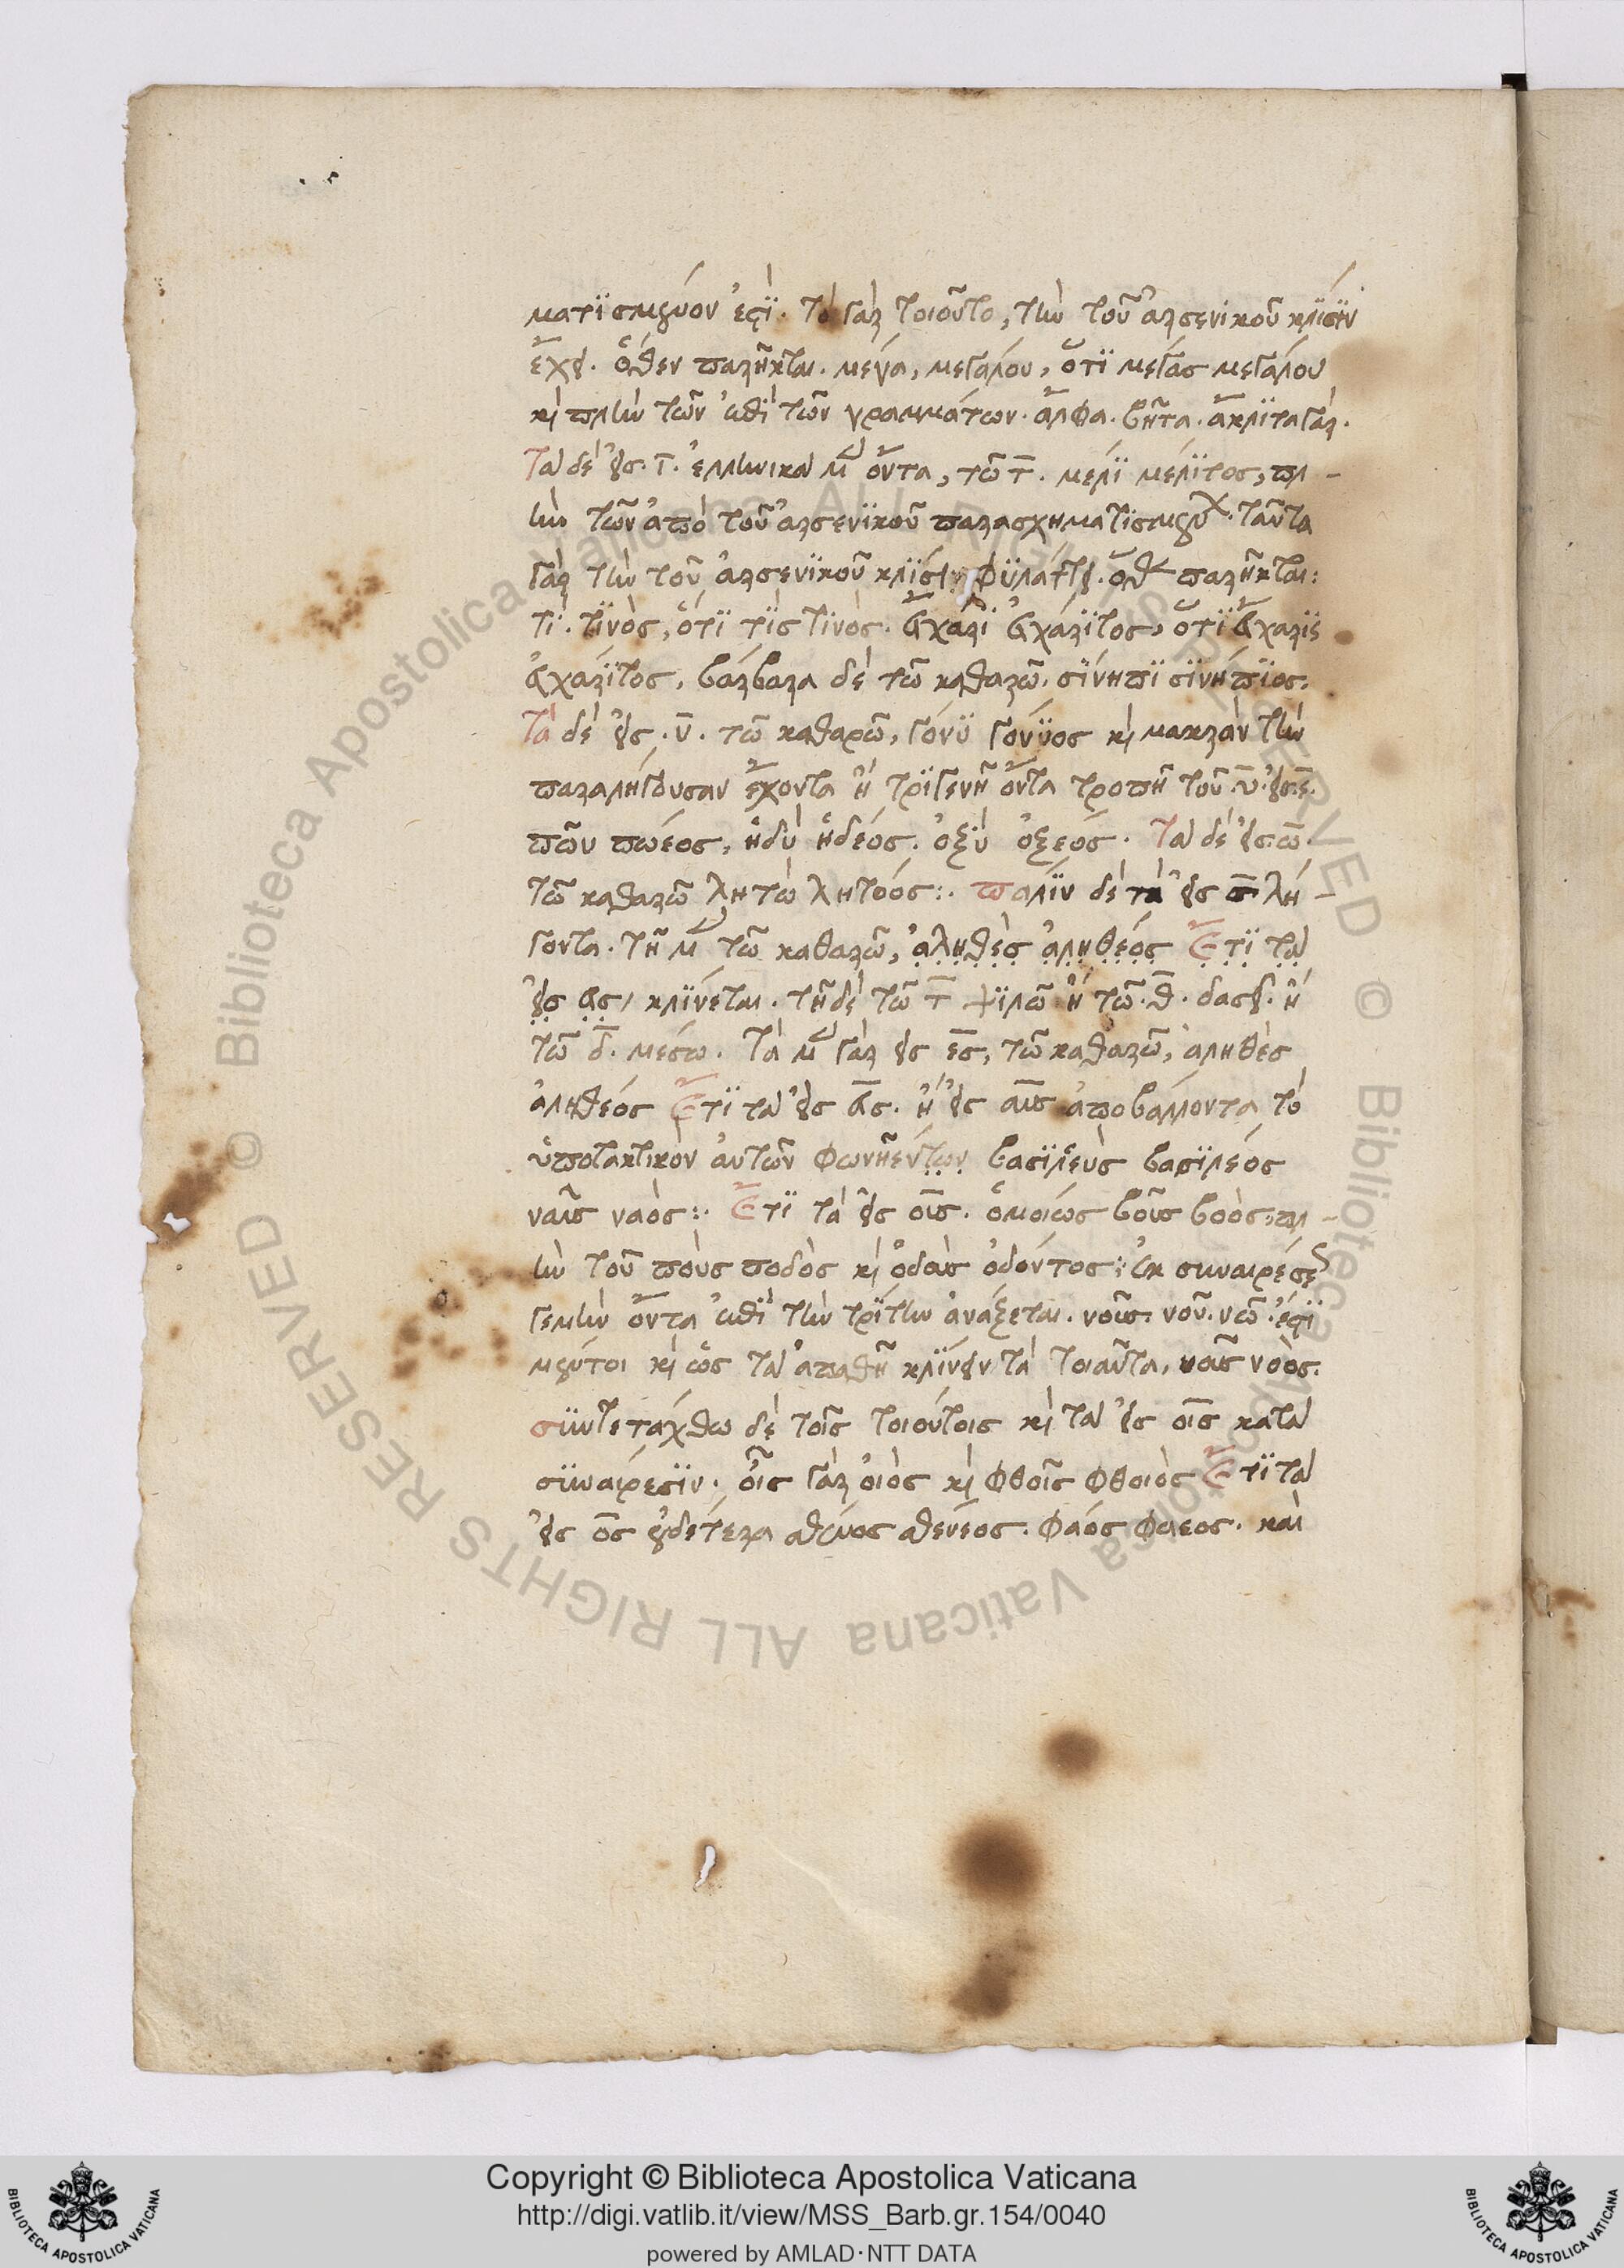 ματισμένον ἐστί. τὸ γὰρ τοιοῦτο, τὴν τοῦ ἀρσενικοῦ κλίσιν
ἔχει. ὅθεν παρῆκται. μέγα, μεγάλου, ὅτι μέγας μεγάλου
καὶ πλὴν τῶν ἐπὶ τῶν γραμμάτων. ἄλφα. βῆτα. ἄκλιτα γάρ.
Τὰ δὲ εἰς. ι. ἑλληνικὰ μὲν ὄντα, τῶ τ. μέλι μέλιτος, πλ-
ὴν τῶν ἀπὸ τοῦ ἀρσενικοῦ παρασχηματισμένων. ταῦτα
γὰρ τὴν τοῦ ἀρσενικοῦ κλίσιν φυλάττει. ὅθεν παρῆκται:
τὶ. τινὸς, ὅτι τὶς τινὸς. εὔχαρι εὐχάριτος, ὅτι εὔχαρις
εὐχάριτος, βάρβαρα δὲ τῶ καθαρῶ. σίνηπι σινήπιος.
Τὰ δὲ εἰς. υ. τῶ καθαρῶ, γόνυ γόνυος καὶ μακρὰν τὴν
παραλήγουσαν ἔχοντα ἢ τριγενῆ ὄντα τροπῆ τοῦ. υ. εἰς ε.
πῶυ πώεος, ἡδὺ ἡδέος. ὀξὺ ὀξέος. Τὰ δὲ εἰς. ω.
τῶ καθαρῶ λητὼ λητόος:. πάλιν δὲ τὰ εἰς σ λή-
γοντα. τῆ μὲν τῶ καθαρῶ, ἀληθὲς ἀληθέος Ἔτι τὰ
εἰς ευς, κλίνεται. τῆ δὲ τῶ τ ψιλῶ ἢ τῶ. θ. δασεῖ. ἢ
τῶ δ. μέσω. Τὰ μὲν γὰρ εἰς ες, τῶ καθαρῶ, ἀληθὲς
ἀληθέος Ἔτι τὰ εἰς ευς. ἢ εἰς αυς ἀποβάλλοντα τὸ
ὑποτακτικὸν αὐτῶν φωνῆέντων βασιλεὺς βασιλέος
ναῦς ναὸς:. Ἔτι τὰ εἰς ους. ὁμοίως βοῦς βοὸς, πλ-
ὴν τοῦ ποὺς ποδὸς καὶ ὀδοὺς ὀδόντος: ἐκ συναιρέσε
γεμὴν ὄντα ἐπὶ τὴν τρίτην ἀνάξεται. νοῦς. νοῦ. νῶ. ἐστὶ
μέντοι καὶ ὡς τὰ ἀπαθῆ κλίνειν τὰ τοιαῦτα, νοῦς νοὸς.
συντετάχθω δὲ τοῖς τοιούτοις καὶ τὰ εἰς οις κατὰ
συναίρεσιν. οἶς γὰρ οἰὸς καὶ φθοῖς φθοιὸς Ἔτι τὰ
εἰς ος οὐδέτερα σθένος σθένεος. φάος φάεος. καὶ
Copyright © Biblioteca Apostolica Vaticana
http://digi.vatlib.it/view/MSS_Barb.gr.154/0040
powered by AMLAD·NTT DATA